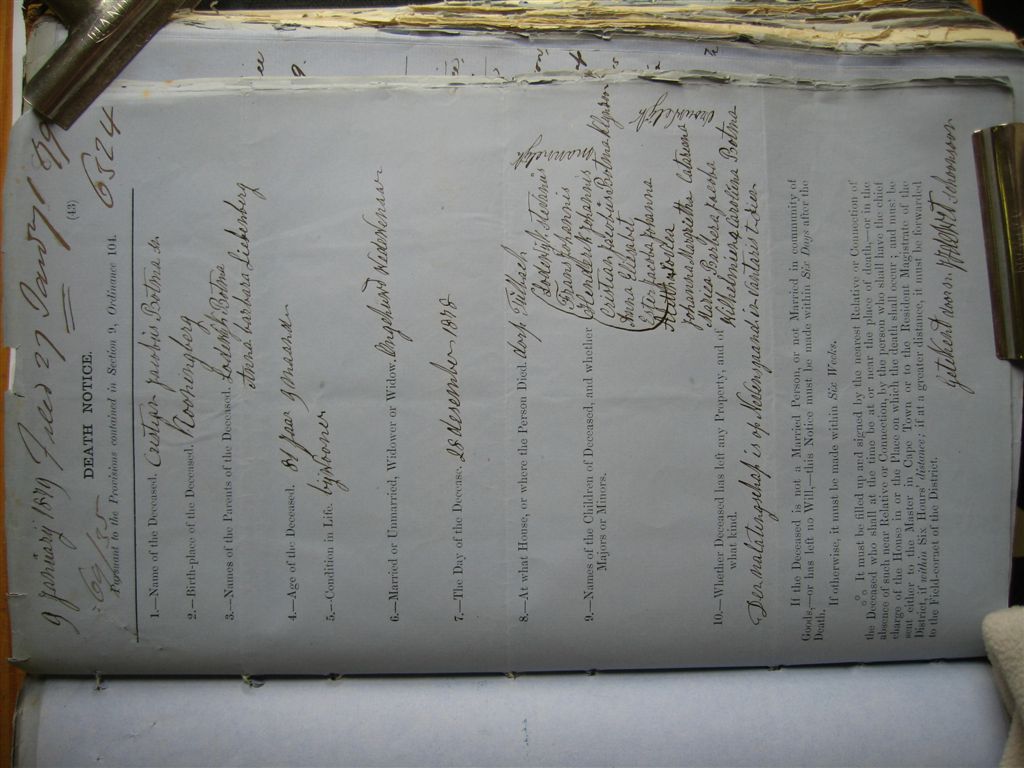 9 januarij 1879 Filed 27 Jany 1879
69/35 (43) 6524
DEATH NOTICE.
Pursuant to the Provisions contained in Section 9, Ordinance 104.
1.—Name of the Deceased. Cristyan jacobis Botma sn
2.—Birth-place of the Deceased. Roohingberg
3.—Names of the Parents of the Deceased. Lodewyk Botma
Anna barbara Liebenberg
4.—Age of the Deceased. 81 jaar 9 maanden
5.—Condition in Life.
6.—Married or Unmarried, Widower or Widow.
7.—The Day of the Decease. 28 desember 1878
8.—At what House, or where the Person Died. dorp Tulbach
9.—Names of the Children of Deceased, and whether
Majors or Minors.
Lodewyk
Frans Johannis mannelyk
Hendrik johannis
Cristian jacobis Botma
Anna Elisabet
Ester jacoba johanna
Aletta
johana Margretha Catariena vrouwelyk
Maria Barbara josepha
Wilhelmiena Carolina Botma
10.—Whether Deceased has left any Property, and of
what kind.
If the Deceased is not a Married Person, or not Married in community of
Goods,—or has left no Will,—this Notice must be made within Six Days after the
Death.
If otherwise, it must be made within Six Weeks.
*** It must be filled up and signed by the nearest Relative or Connection of
the Deceased who shall at the time be at or near the place of death,—or in the
absence of such near Relative or Connection, by the person who shall have the chief
charge of the House in or the Place on which the death shall occur; and must be
sent either to the Master in Cape Town or to the Resident Magistrate of the
District, if within Six Hours' distance; if at a greater distance, it must be forwarded
to the Field-cornet of the District.
Getekent